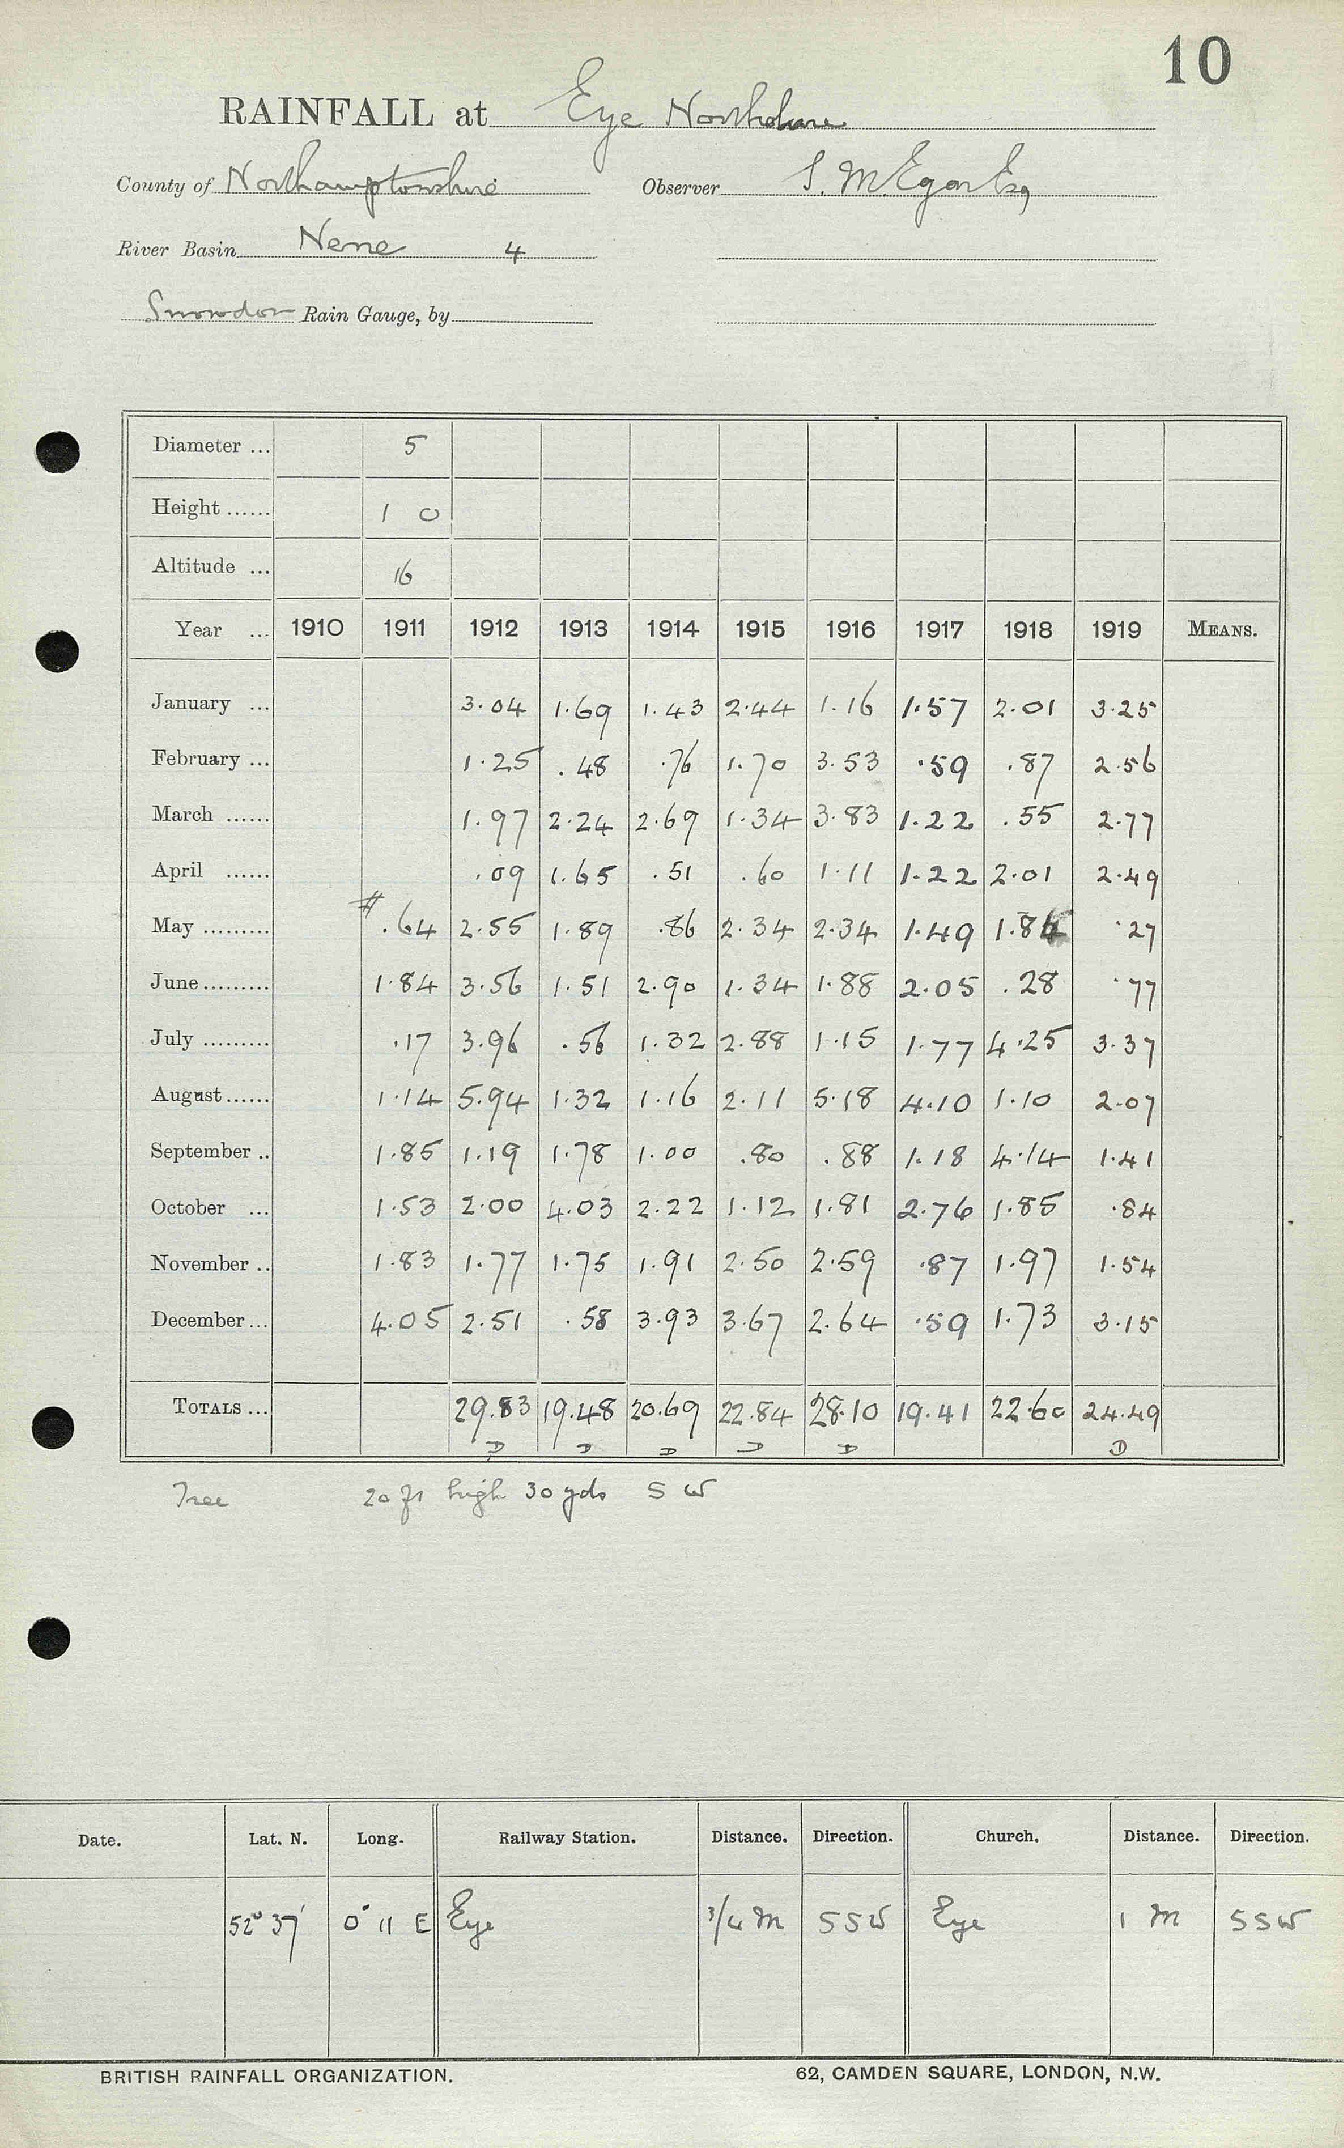 10
RAINFALL at Eye Northolme
County of Northamptonshire Observer S. M. Egar Esq
River Basin Nene 4
Snowdon Rain Gauge, by
Diameter ... 5
Height ...... 1 0
Altitude ... 16
Year ... 1910 1911 1912 1913 1914 1915 1916 1917 1918 1919 MEANS.
January ... 3.04 1.69 1.43 2.44 1.16 1.57 2.01 3.25
February ... 1.25 .48 .76 1.70 3.53 .59 .87 2.56
March ...... 1.97 2.24 2.69 1.34 3.83 1.22 .55 2.77
April ...... .09 1.65 .51 .60 1.11 1.22 2.01 2.49
May ......... # .64 2.55 1.89 .86 2.34 2.34 1.49 1.84 .27
June ......... 1.84 3.56 1.51 2.90 1.34 1.88 2.05 .28 .77
July ......... .17 3.96 .56 1.32 2.88 1.15 1.77 4.25 3.37
August ...... 1.14 5.94 1.32 1.16 2.11 5.18 4.10 1.10 2.07
September .. 1.85 1.19 1.78 1.00 .80 .88 1.18 4.14 1.41
October ... 1.53 2.00 4.03 2.22 1.12 1.81 2.76 1.85 .84
November .. 1.83 1.77 1.75 1.91 2.50 2.59 .87 1.97 1.54
December ... 4.05 2.51 .58 3.93 3.67 2.64 .59 1.73 3.15
TOTALS ... 29.83 19.48 20.69 22.84 28.10 19.41 22.60 24.49
D D D D D D
Tree 20 ft high 30 yds S W
Date. Lat. N. Long. Railway Station. Distance. Direction. Church. Distance. Direction.
52° 37' 0° 11 E Eye 3/4 M SSW Eye 1 M SSW
BRITISH RAINFALL ORGANIZATION. 62, CAMDEN SQUARE, LONDON, N.W.